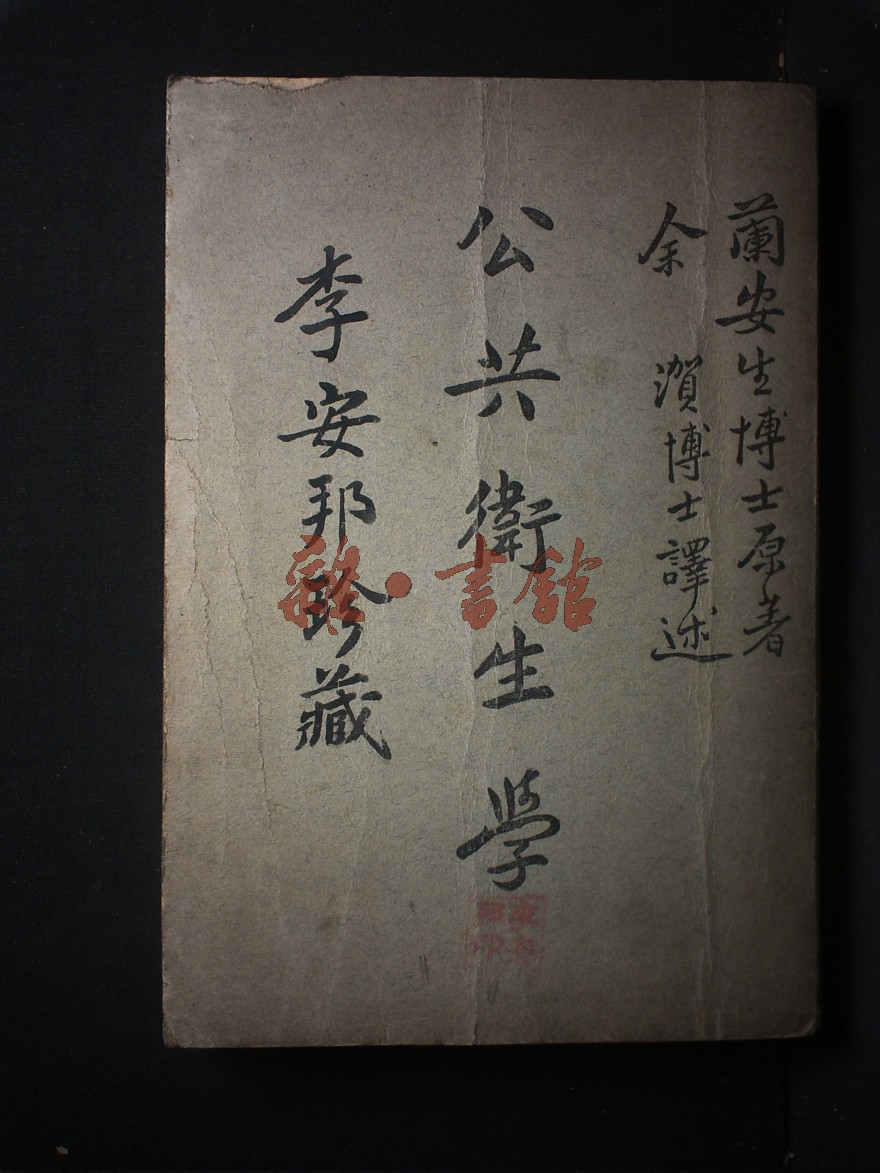 蘭安生博士原著
余 濱博士譯述
公共衛生學
李安邦珍藏
雜·書館